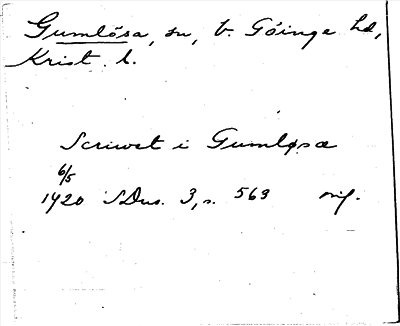 Gumlösa, sn, V. Göinge hd,
Krist. l.
Scriwet i Gumløsæ
6/5
1420 SDns. 3, s. 569 orig.